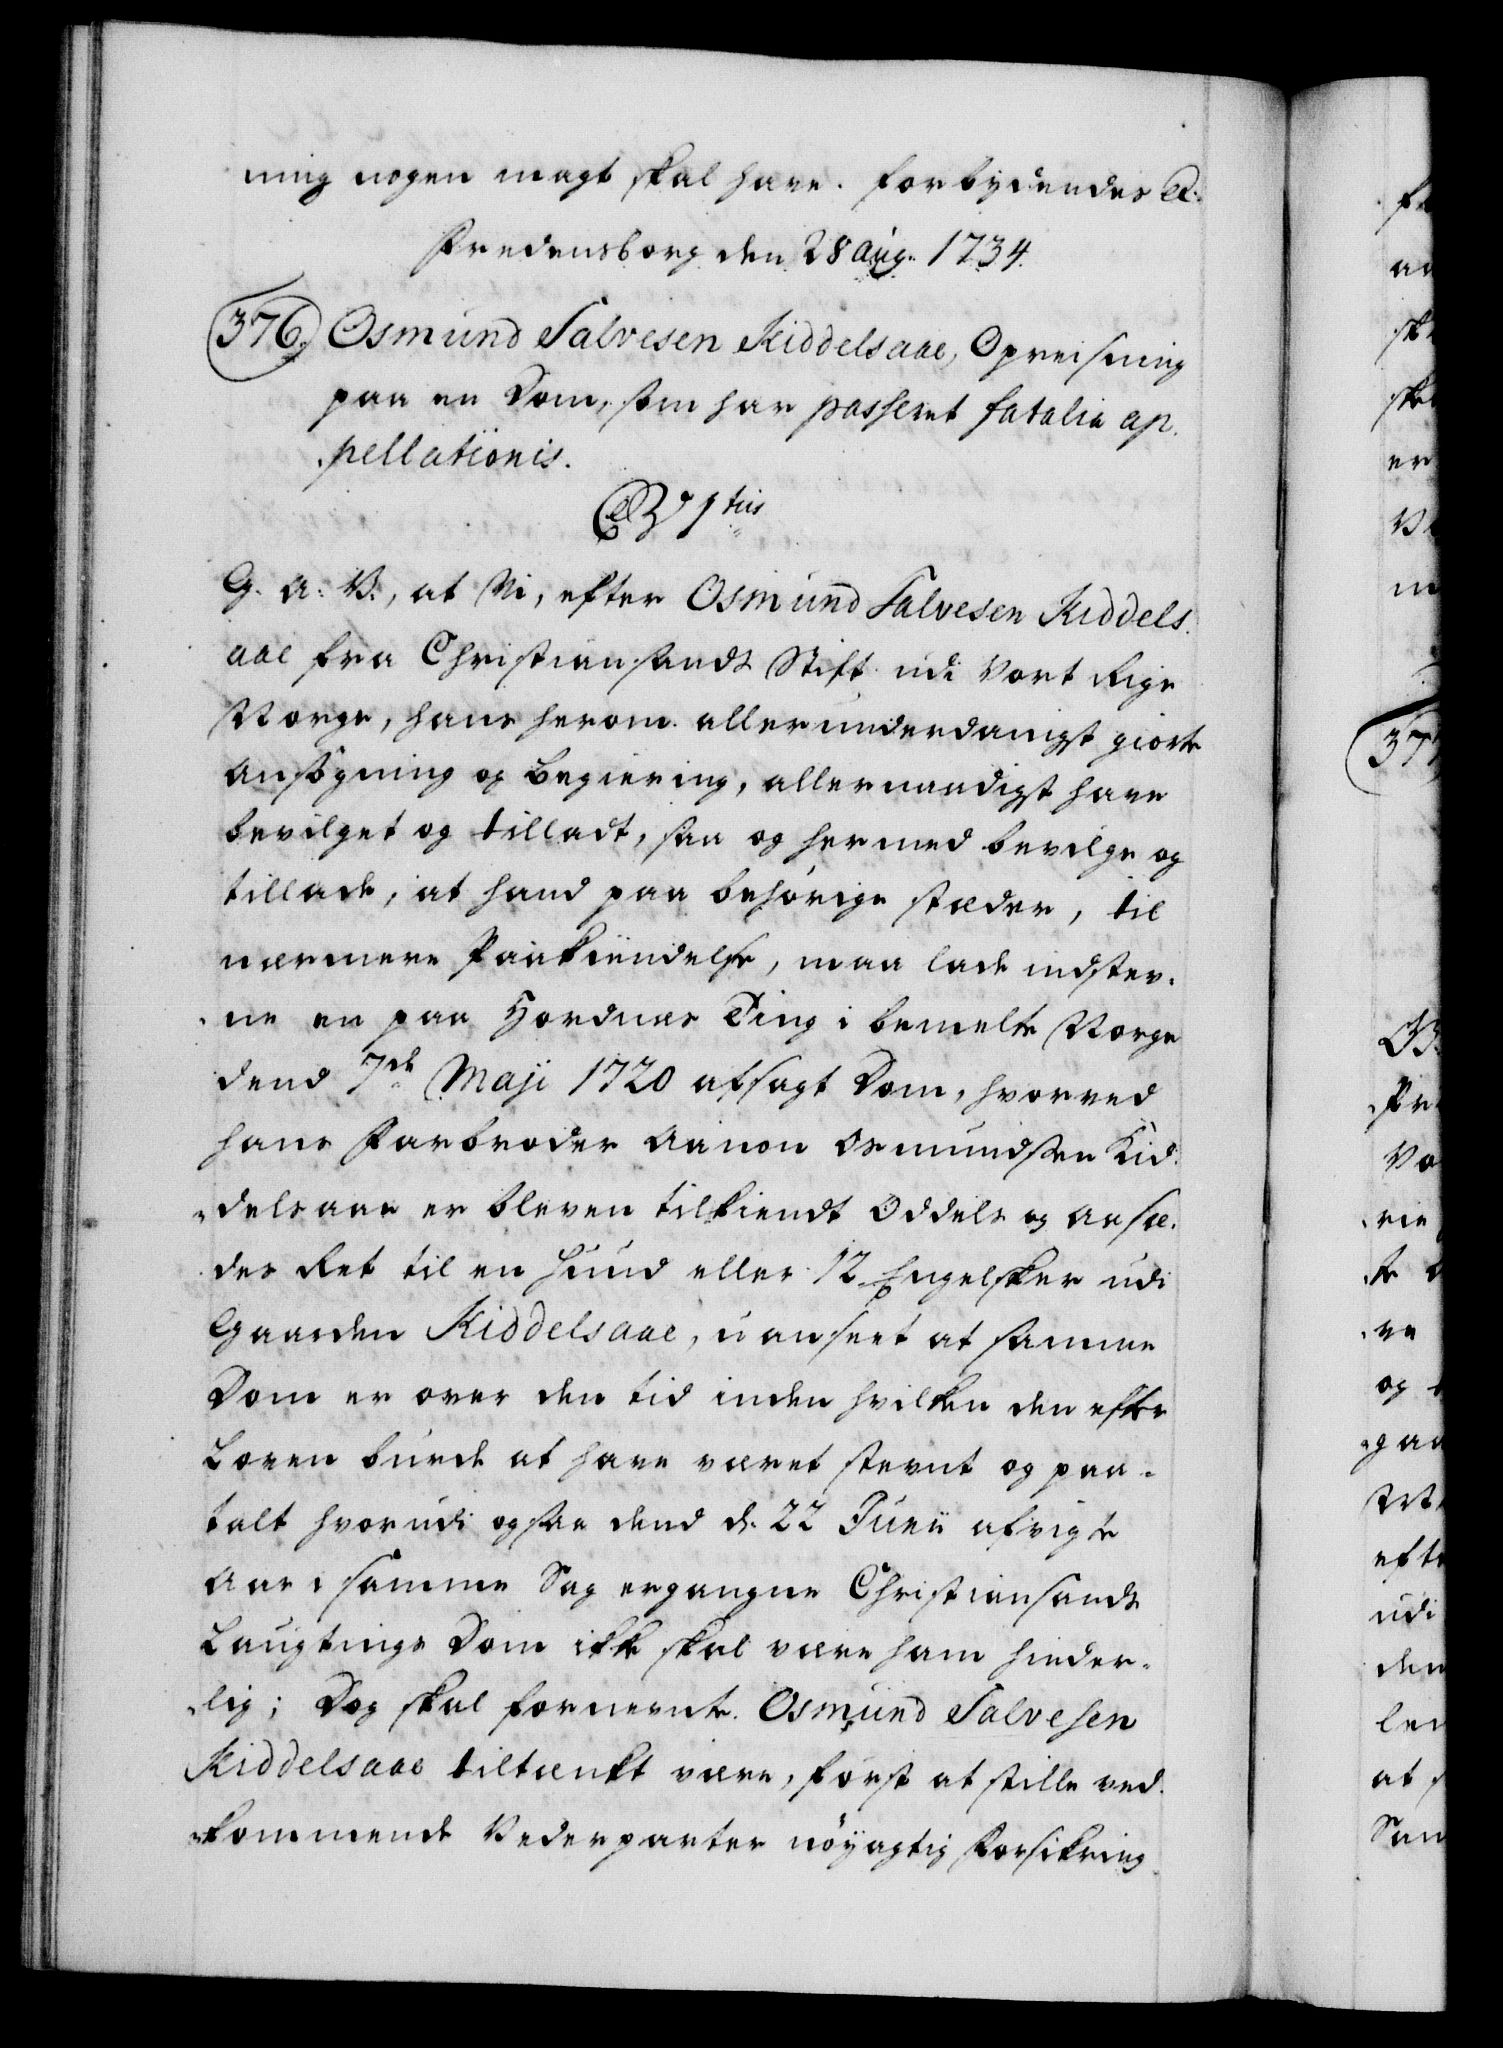 ning nogen magt skal have. forbydendes &c.
Fredensborg den 28 Aug. 1734.
376. Osmund Salvesen Kiddelsaae, Opreisning
paa en Dom, som har passeret fatalia ap.
pellationis.
G. A. V., at Vi, efter Osmund Salvesen Kiddels.
aae fra Christiansands Stift udi Vort Rige
Norge, hans herom allerunderdanigst giorte
Ansögning og Begiering, allernaadigst have
bevilget og tilladt, saa og hermed bevilge og
tillade, at hand paa behörige stæder, til
nærmere Paakiendelse, maa lade indstev.
ne en paa Hordnes Ting i bemelte Norge
dend 7de Maji 1720 afsagt Dom, hvorved
hans Farbroder Aanon Osmundsen Kid.
delsaae er bleven tilkiendt Oddels og Aasæ.
des Ret til en Huud eller 12 Engelsker udi
Gaarden Kiddelsaae, uanseet at samme
Dom er over den tid inden hvilken den efter
Loven burde at have været stevnt og paa-
talt hvorudi ogsaa dend d. 22 Junii afvigte
Aar i samme Sag ergangne Christiansands
Laugtings Dom ikke skal være ham hinder-
lig; Dog skal fornevnte Osmund Salvesen
Kiddelsaae tiltænkt være, först at stille ved.
kommende Vederparter nöyagtig Forsikring